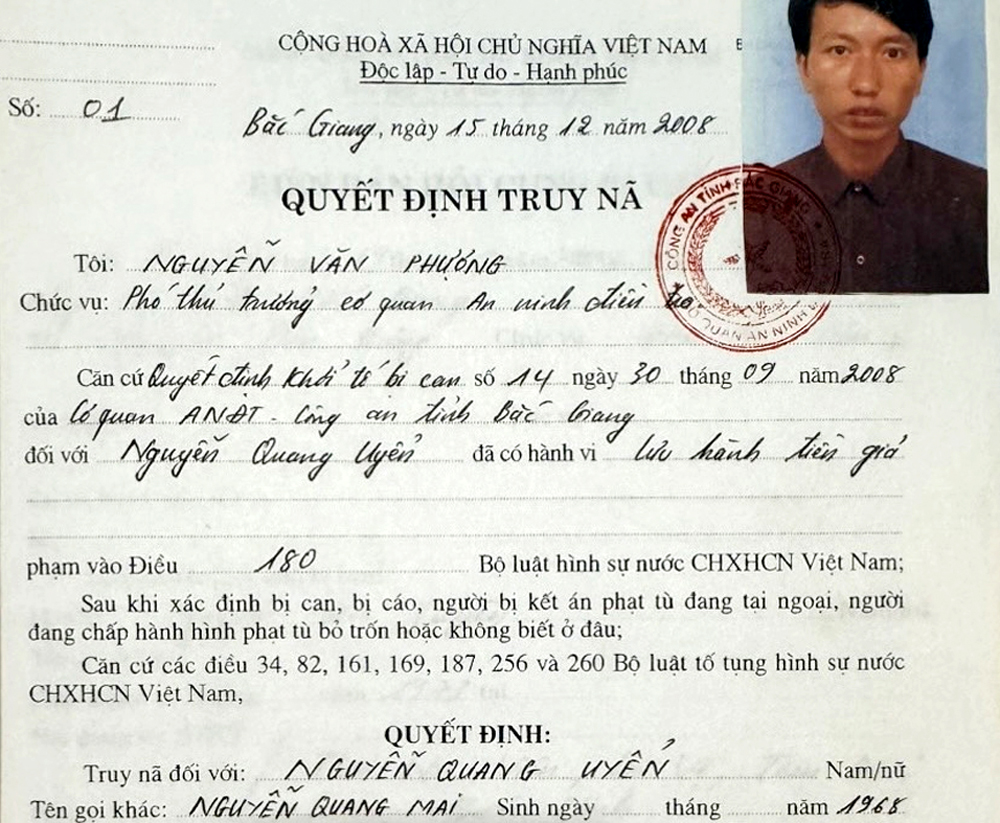 CỘNG HOÀ XÃ HỘI CHỦ NGHĨA VIỆT NAM
Độc lập - Tự do - Hạnh phúc
Số: 01
Bắc Giang, ngày 15 tháng 12 năm 2008
QUYẾT ĐỊNH TRUY NÃ
CÔNG AN TỈNH BẮC GIANG
CƠ QUAN AN NINH
Tôi: NGUYỄN VĂN PHƯỢNG
Chức vụ: Phó thủ trưởng cơ quan An ninh điều tra
Căn cứ Quyết định khởi tố bị can số 14 ngày 30 tháng 09 năm 2008
của Cơ quan ANĐT - Công an tỉnh Bắc Giang
đối với Nguyễn Quang Uyển đã có hành vi lưu hành tiền giả
phạm vào Điều 180 Bộ luật hình sự nước CHXHCN Việt Nam;
Sau khi xác định bị can, bị cáo, người bị kết án phạt tù đang tại ngoại, người
đang chấp hành hình phạt tù bỏ trốn hoặc không biết ở đâu;
Căn cứ các điều 34, 82, 161, 169, 187, 256 và 260 Bộ luật tố tụng hình sự nước
CHXHCN Việt Nam,
QUYẾT ĐỊNH:
Truy nã đối với: NGUYỄN QUANG UYỂN Nam/nữ
Tên gọi khác: NGUYỄN QUANG MAI Sinh ngày tháng năm 1968